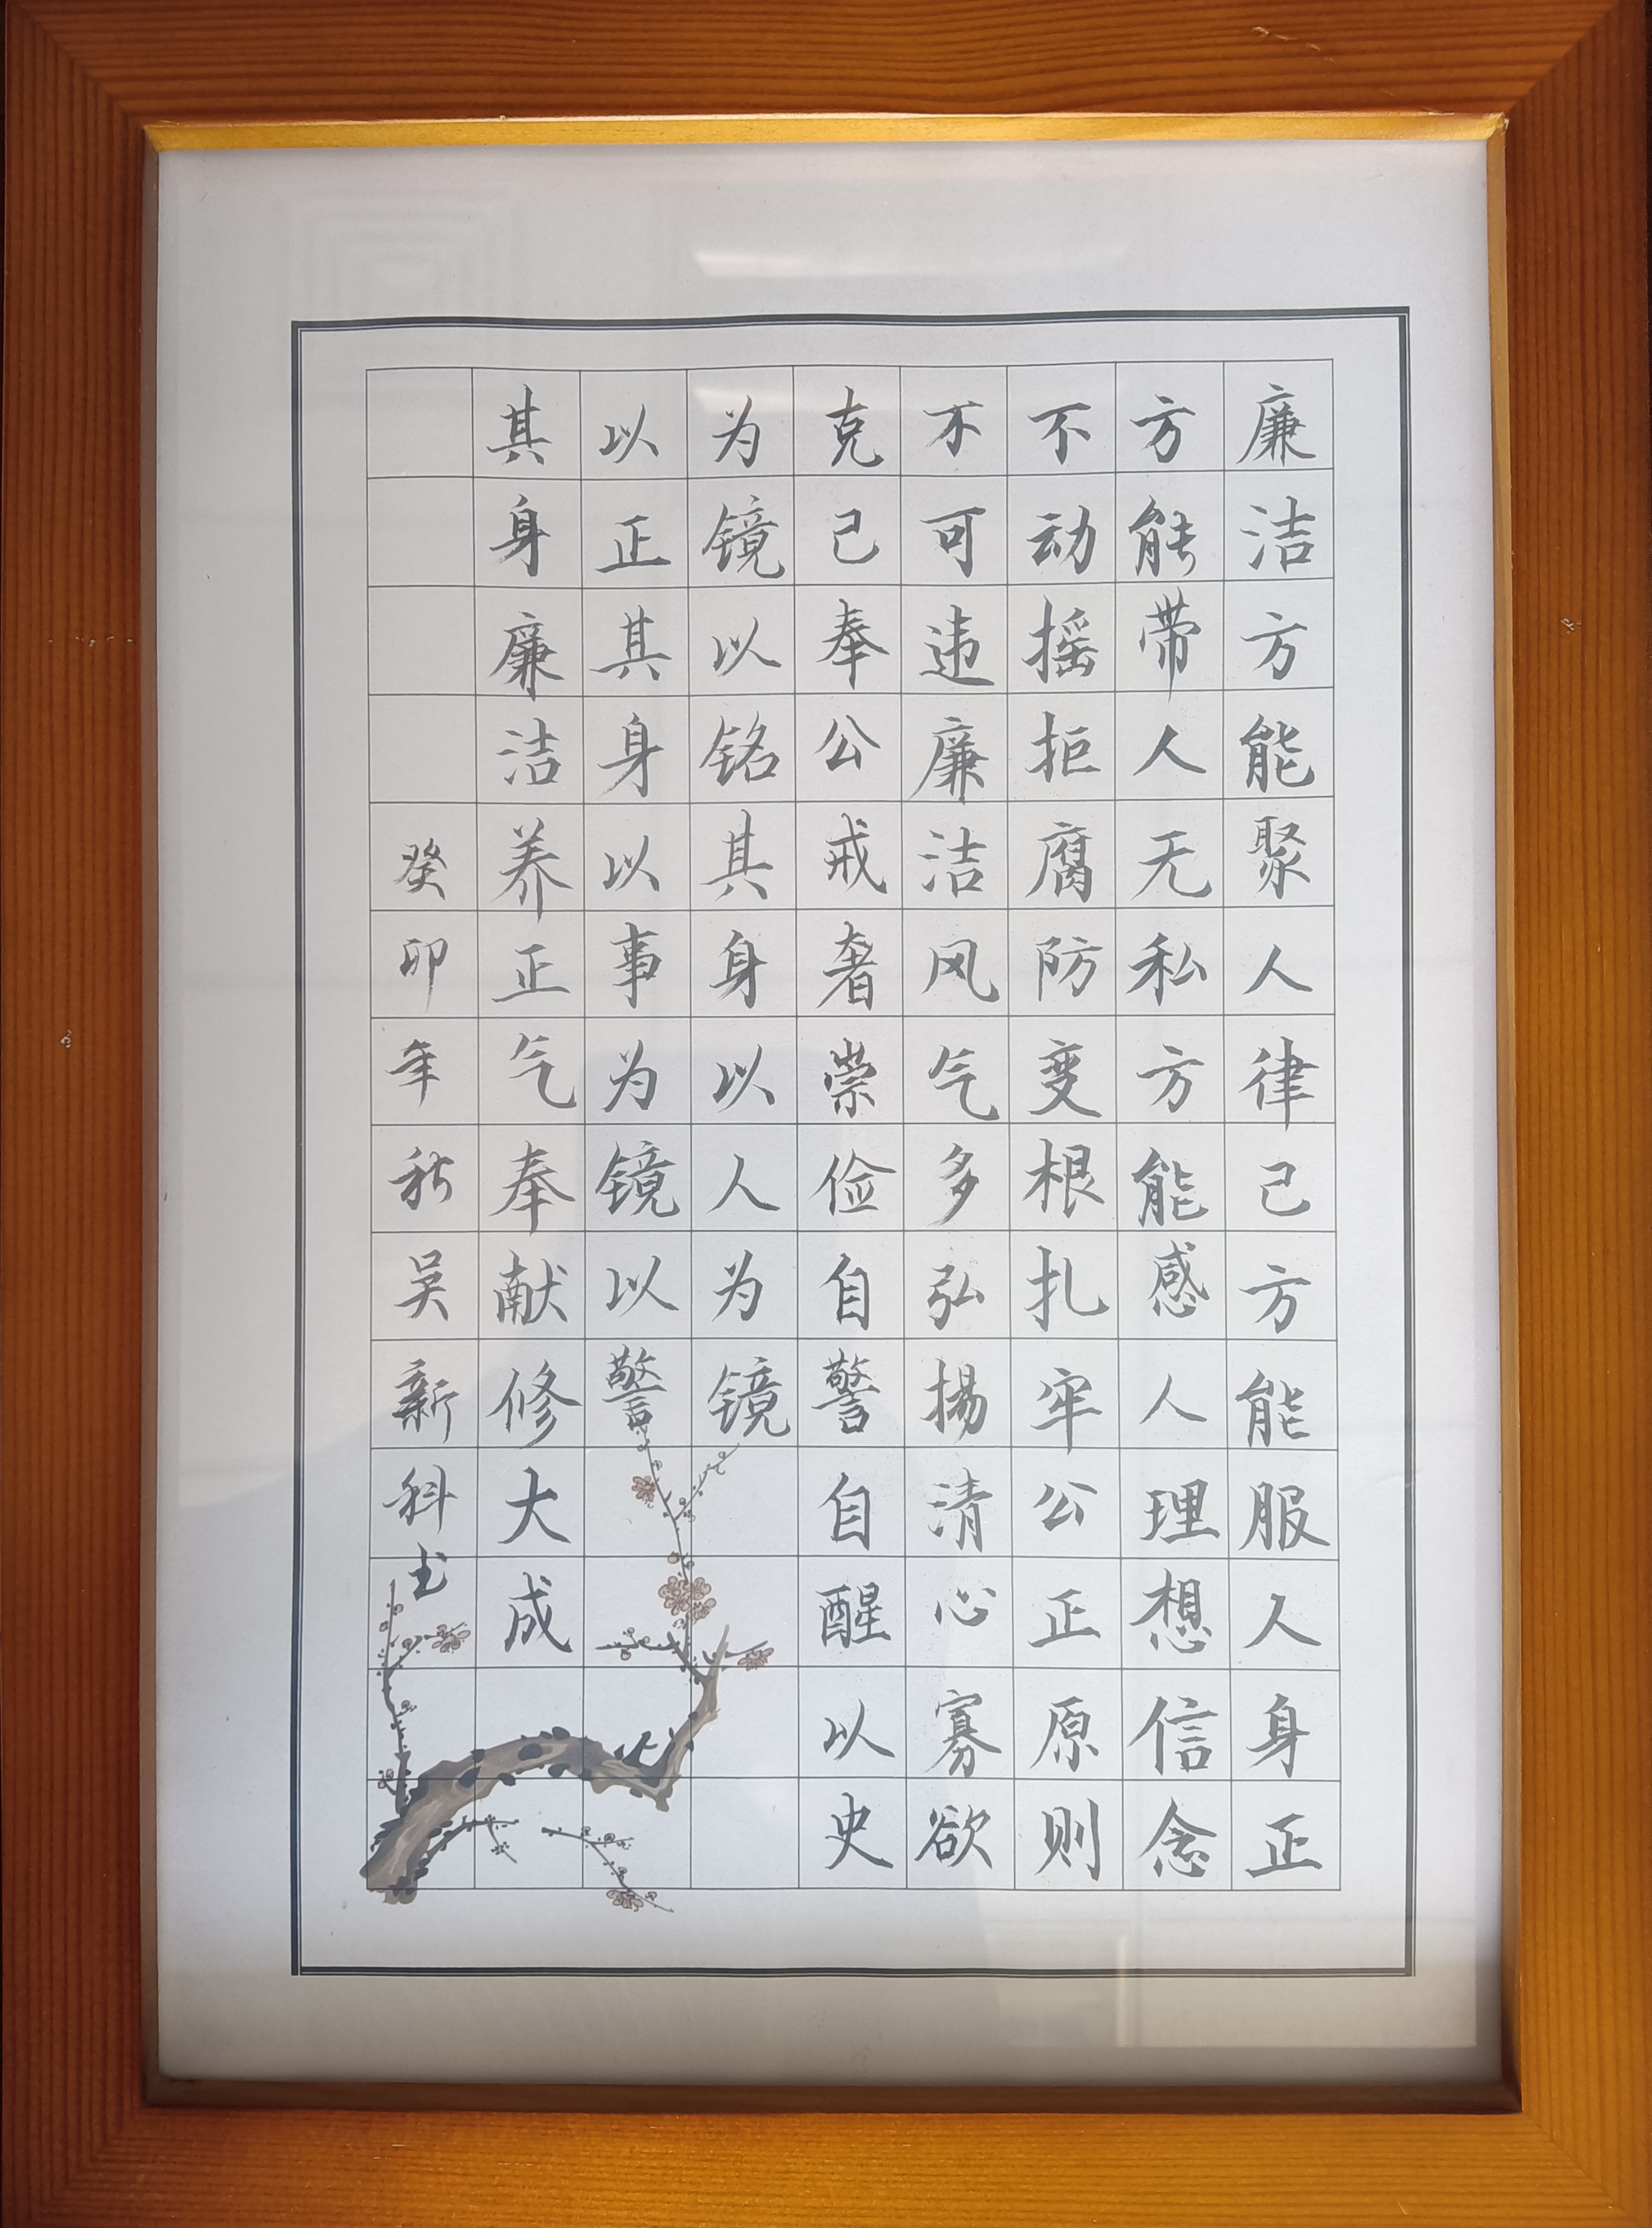 廉洁方能聚人律己方能服人身正
方能带人无私方能感人理想信念
不动摇拒腐防变根扎牢公正原则
不可违廉洁风气多弘揚清心寡欲
克己奉公戒奢崇俭自警自醒以史
为镜以铭其身以人为镜
以正其身以事为镜以警
其身廉洁养正气奉献修大成
癸卯年秋吴新科书